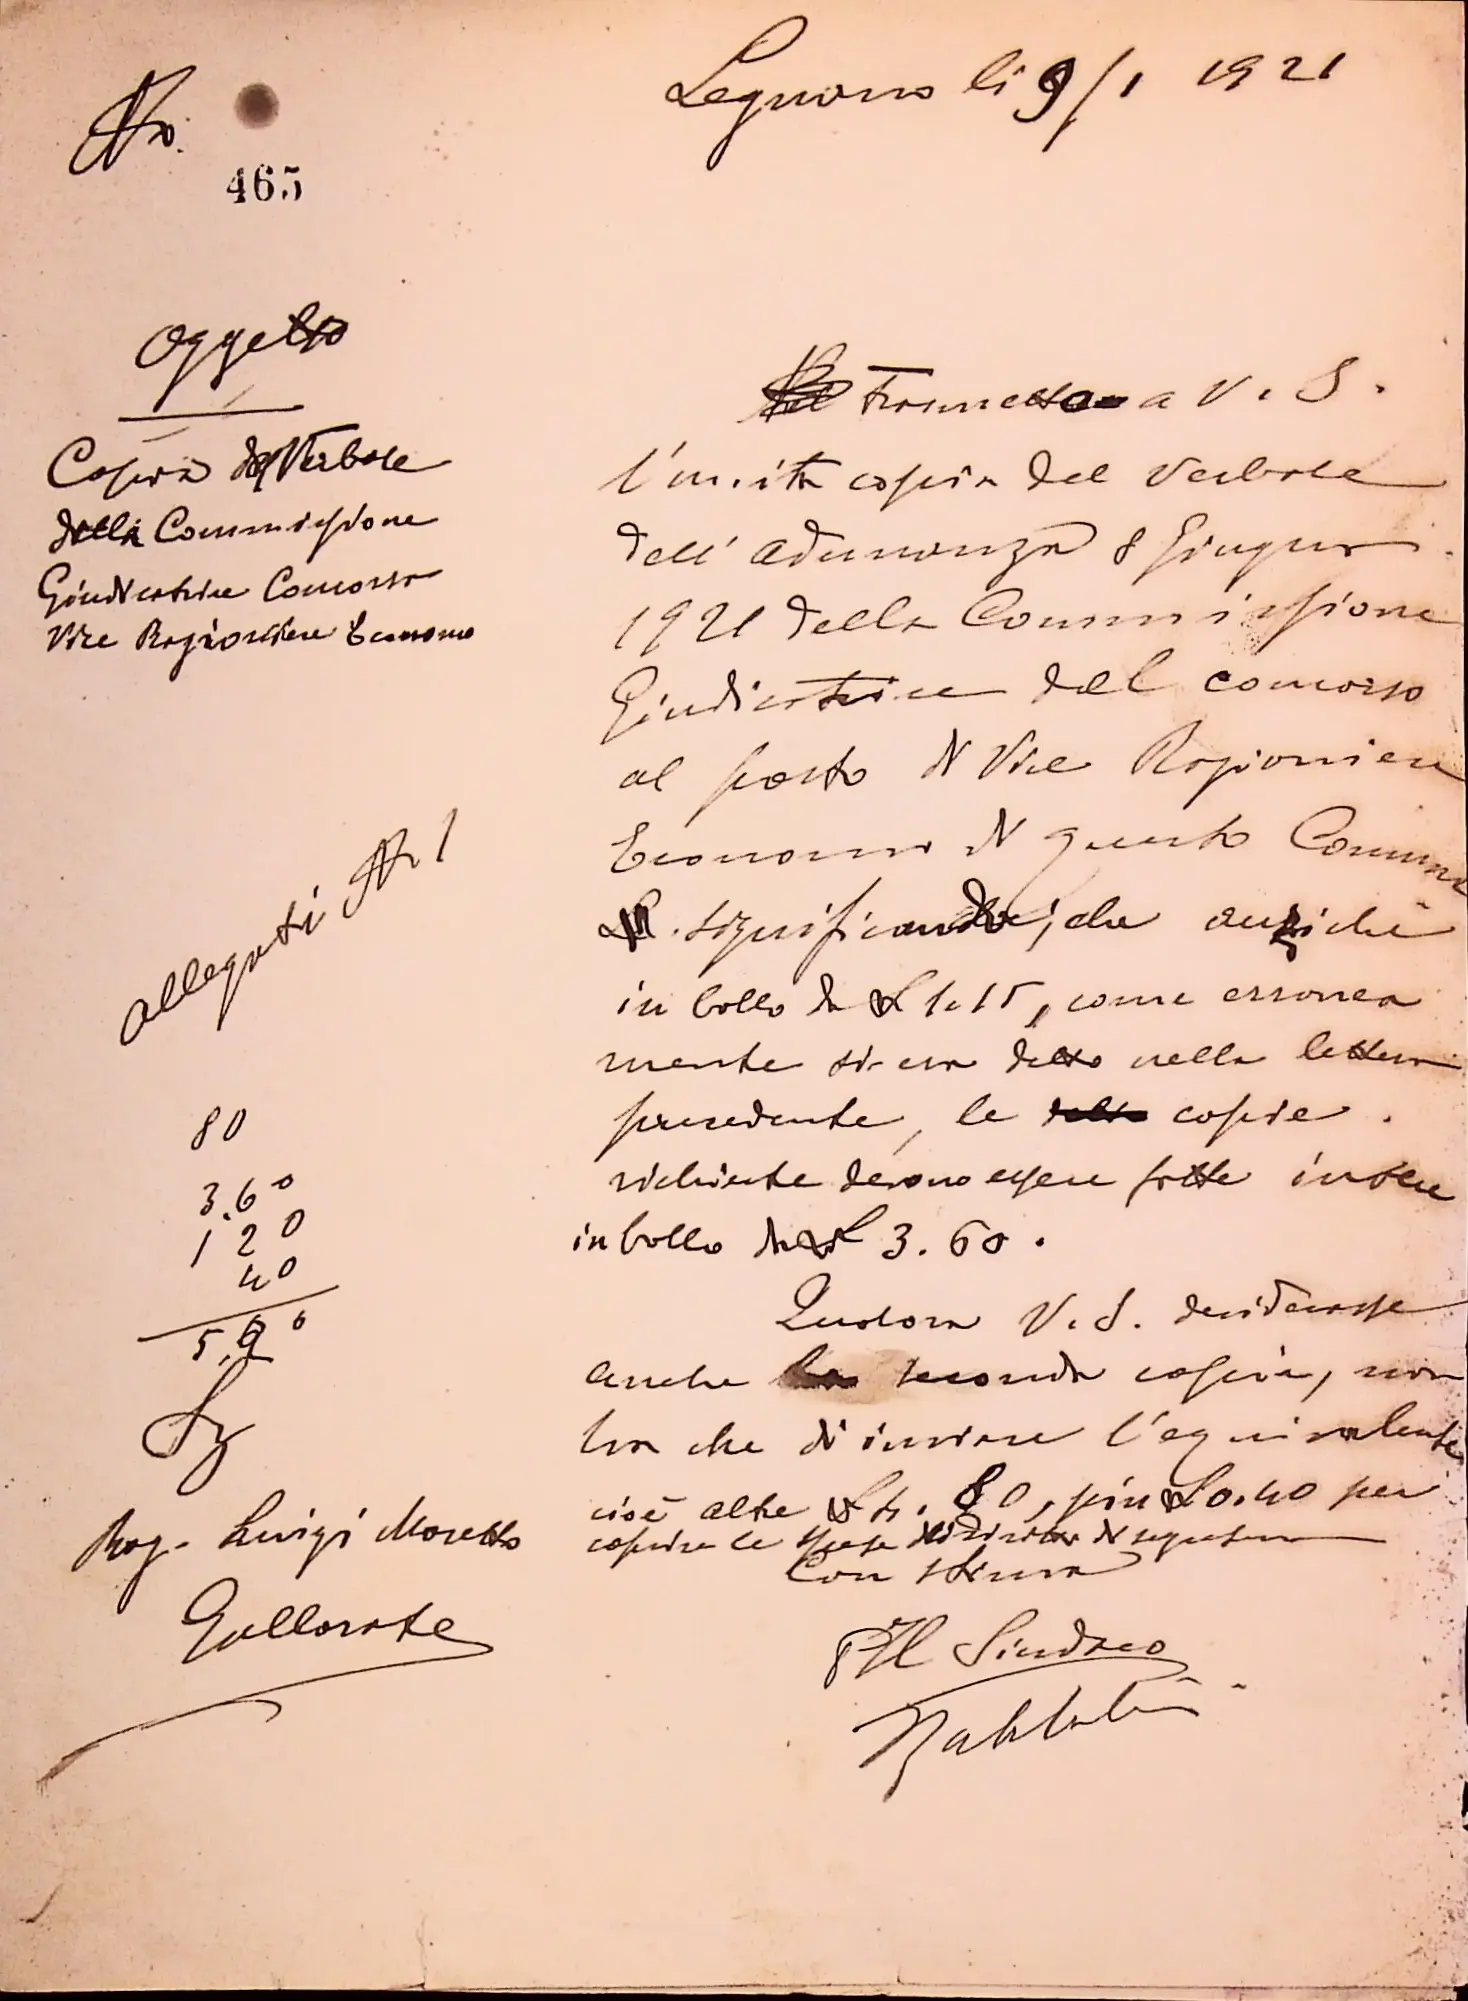 Legnano li 9/1 1921
No.
465
Oggetto
Copia del Verbale
della Commissione
Giudicatrice Concorso
Vice Ragioniere Economo
allegati No 1
80
3.60
1 20
40
5.20
Rag. Luigi Moretto
Gallarate
Trasmetto a V. S.
l'unita copia del Verbale
dell'adunanza 8 Giugno
1921 della Commissione
Giudicatrice del concorso
al posto di Vice Ragioniere
Economo di questo Comune
significando, che anziché
in bollo da L 1.15, come erronea
mente si era detto nella lettera
precedente, le copie
richieste devono essere fatte invece
in bollo da L 3.60.
Qualora V. S. desiderasse
anche la seconda copia, non
ha che di inviare l'equivalente
cioè altre L 80, più L 0.40 per
copia le spese di segreteria
Con stima
Il Sindaco